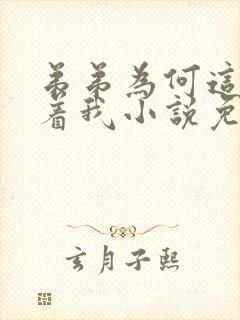 弟弟為何這
著我小說免
玄月子熙